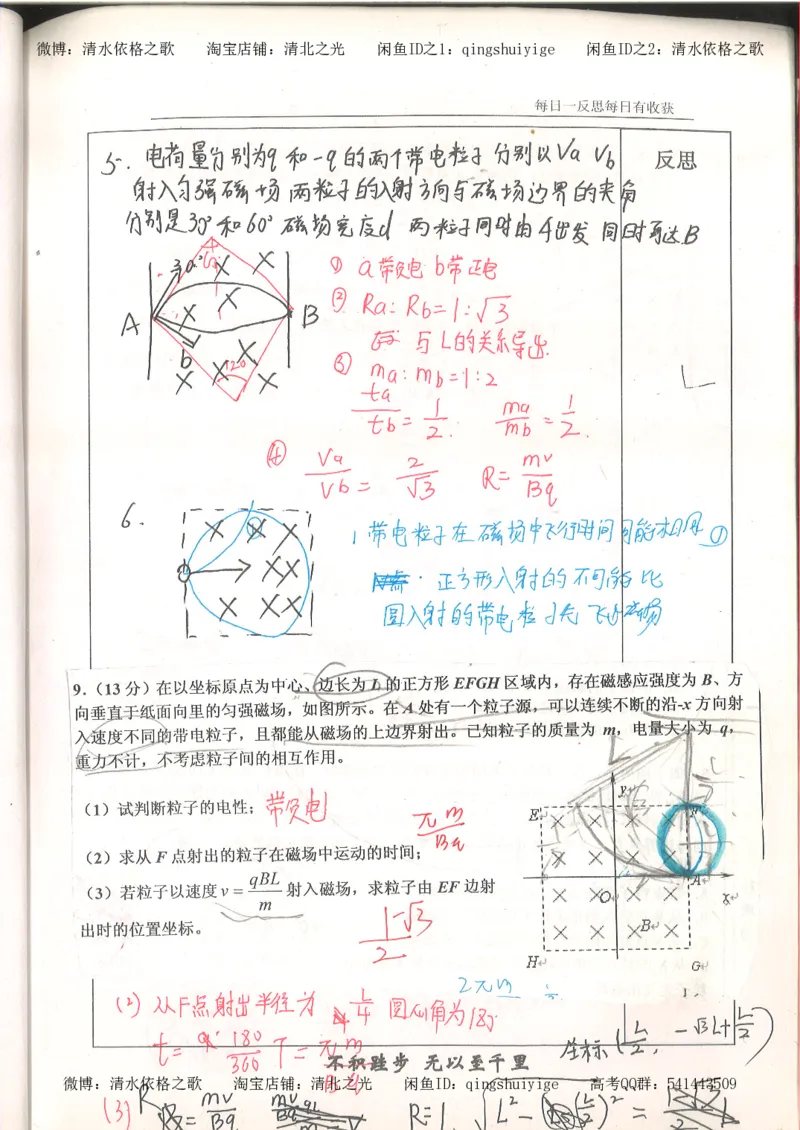 微博：清水依格之歌 淘宝店铺：清北之光 闲鱼ID之1：qingshuiyige 闲鱼ID之2：清水依格之歌
每日一反思每日有收获
5. 电荷量分别为q和-q的两个带电粒子分别以Va Vb
反思
射入匀强磁场 两粒子的入射方向与磁场边界的夹角
分别是30°和60° 磁场宽度d 两粒子同时由A出发 同时到达B
30°
A
B
b
120
① a带负电 b带正电
② Ra:Rb=1:√3
与L的关系导出.
③ ma:mb=1:2
ta/tb=1/2. ma/mb=1/2.
④ Va/Vb=2/√3 R=mv/Bq
6.
1 带电粒子在磁场中飞行时间可能相同 ①
正方形入射的不可能比
圆入射的带电粒子先飞出磁场
9．（13 分）在以坐标原点为中心、边长为 L 的正方形 EFGH 区域内，存在磁感应强度为 B、方
向垂直于纸面向里的匀强磁场，如图所示。在 A 处有一个粒子源，可以连续不断的沿-x 方向射
入速度不同的带电粒子，且都能从磁场的上边界射出。已知粒子的质量为 m，电量大小为 q，
重力不计，不考虑粒子间的相互作用。
（1）试判断粒子的电性；带负电
πm/Bq
（2）求从 F 点射出的粒子在磁场中运动的时间；
（3）若粒子以速度 v = qBL/m 射入磁场，求粒子由 EF 边射
出时的位置坐标。
1-√3/2
y
E
F
A
O
x
B
H
G
2πm
(2) 从F点射出半径为 L/4 圆心角为180
t= 180/360 T = πm
坐标(L/2, -√3L+L/2)
不积跬步 无以至千里
微博：清水依格之歌 淘宝店铺：清北之光 闲鱼ID：qingshuiyige 高考QQ群：541442509
(3) R=mv/Bq